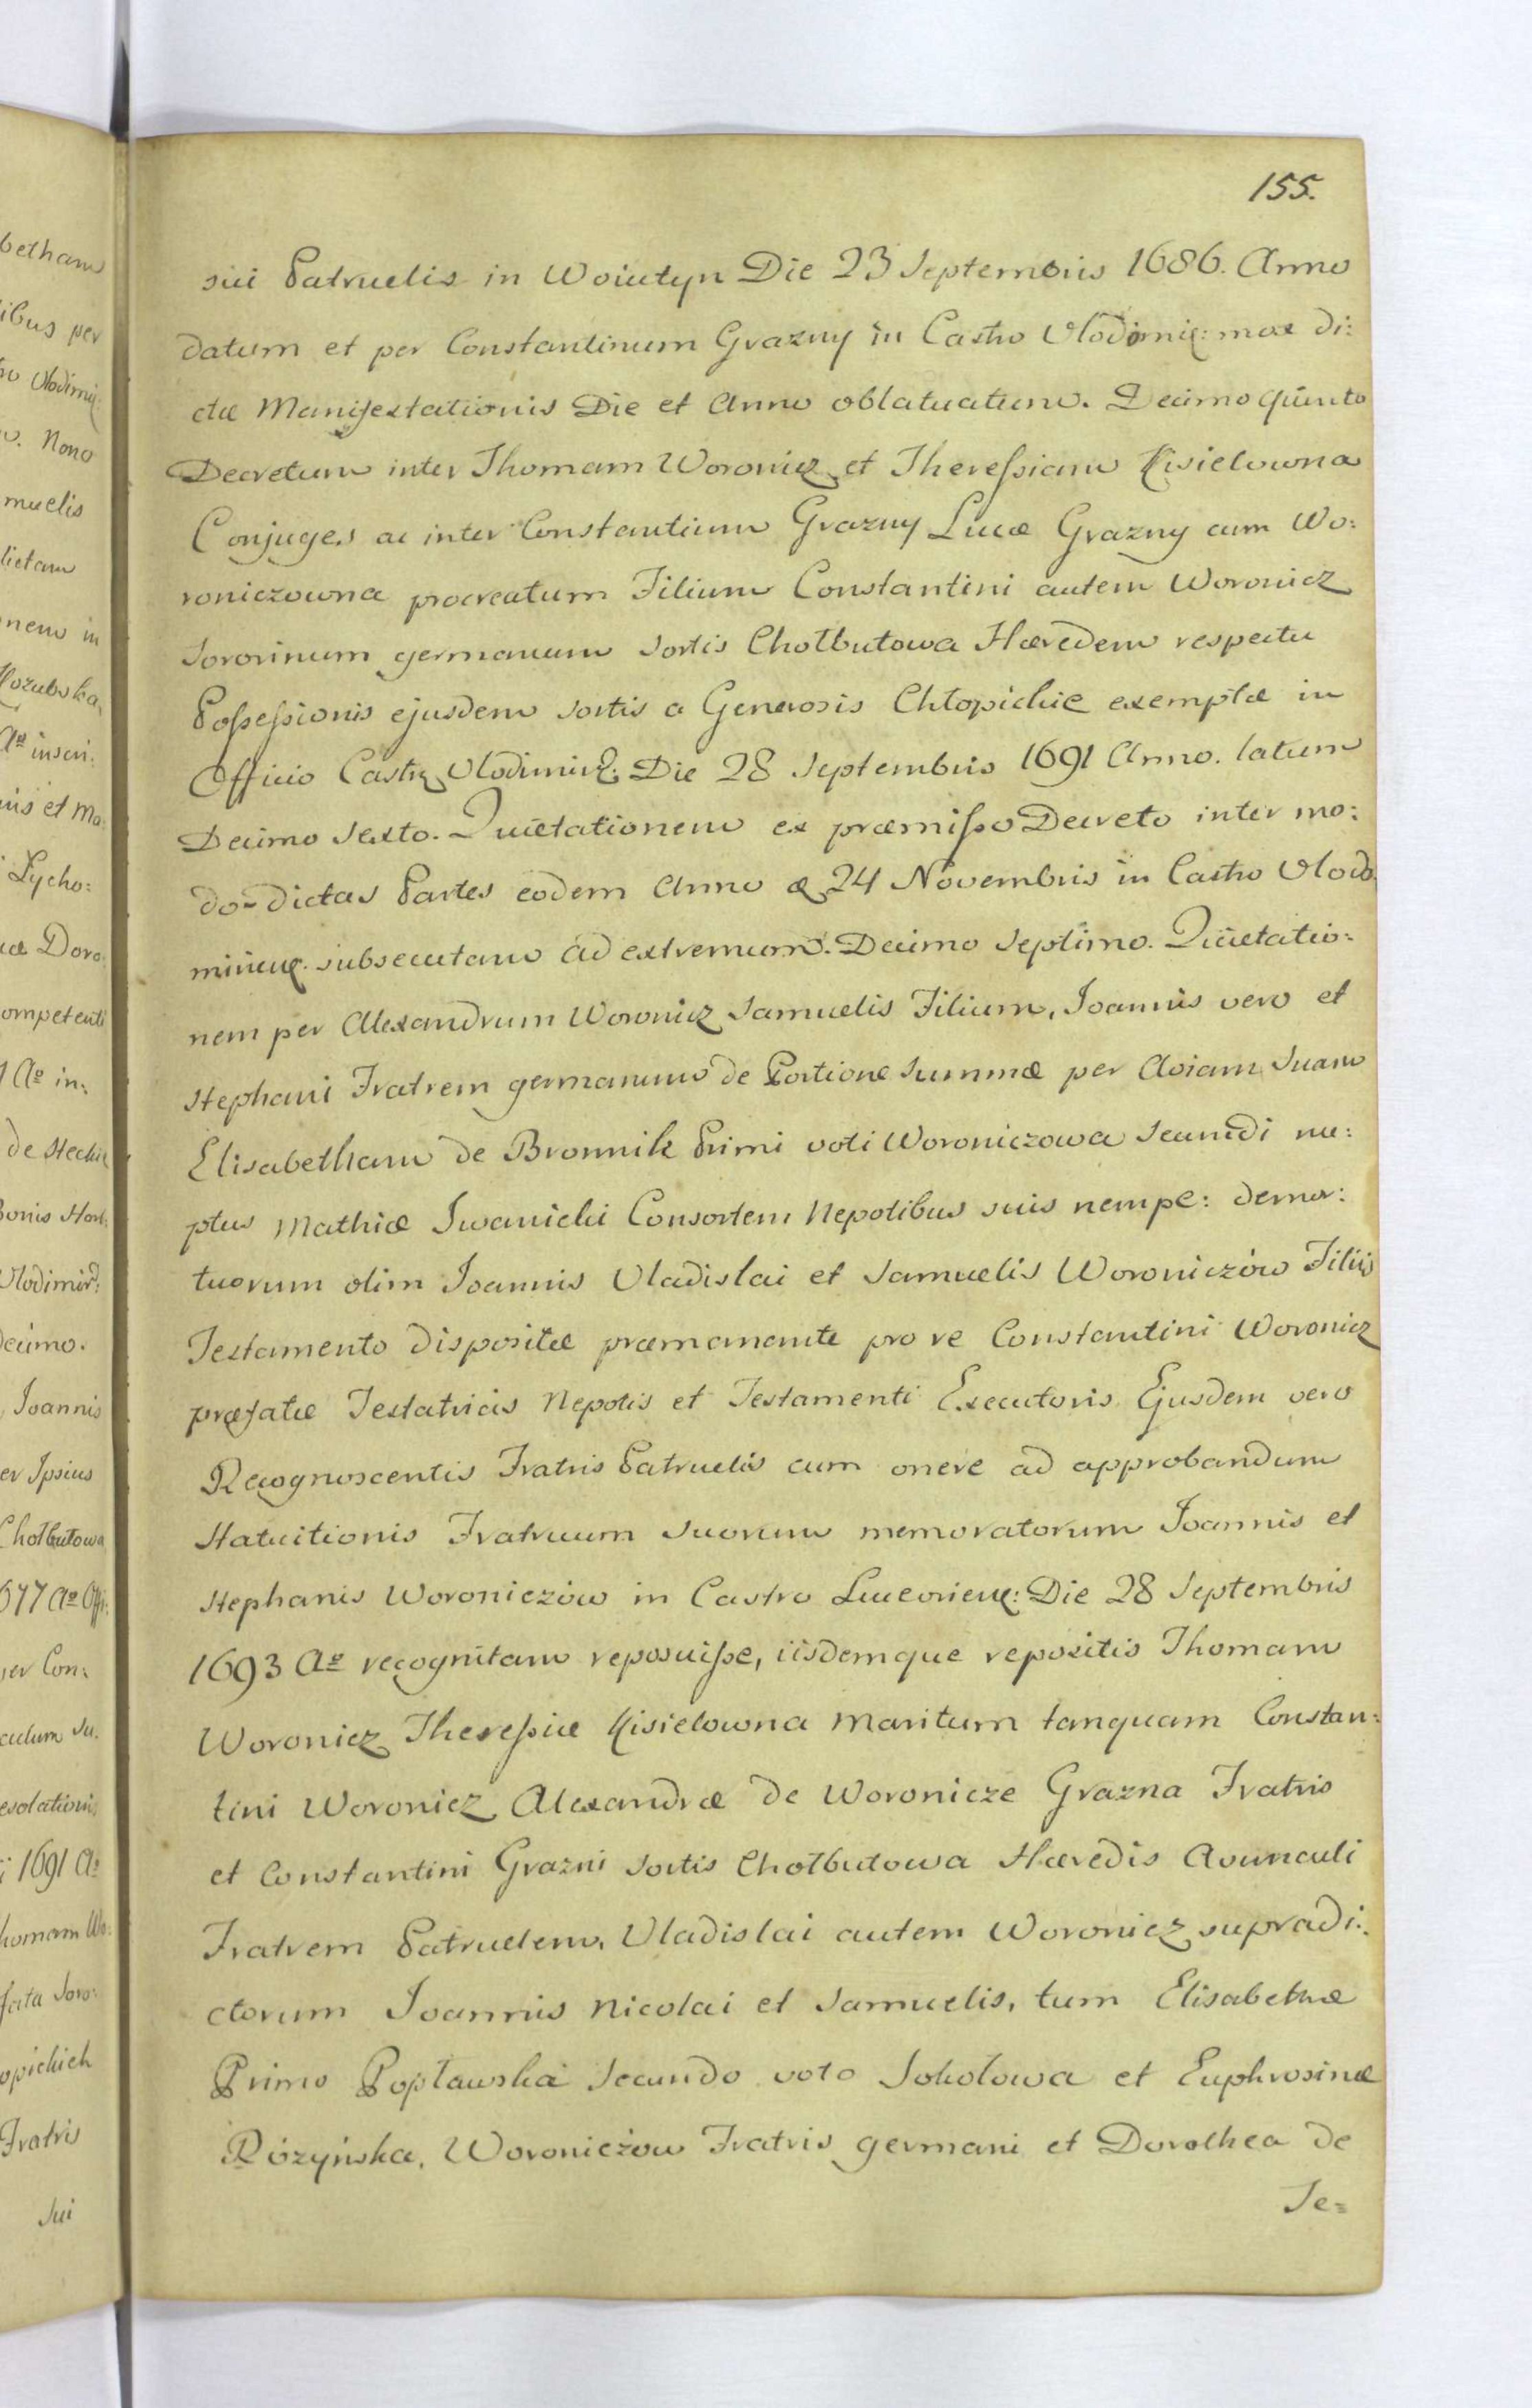 155.
sui Patruelis in Woiutyn Die 23 Septembris 1686. Anno
datum et per Constantinum Grazny in Castro Vlodimi: mox di:
ctæ Manifestationis Die et Anno oblatuatum. Decimo quinto
Decretum inter Thomam Woronicz et Theressiam Kisielowna
Conjuges ac inter Constantium Grazny Lucæ Grazny cum Wo:
roniczowna procreatum Filium Constantini autem Woronicz
Sororinum germanum Sortis Chołbutowa Hæredem respectu
Possessionis ejusdem sortis a Generosis Chłopickie exemptæ in
Officio Castr. Vlodimir. Die 28 Septembris 1691 Anno. latum
Decimo Sexto. Quietationem ex præmisso Decreto inter mo:
do-dictas Partes eodem Anno & 24 Novembris in Castro Vlodi
miriens. subsecutam ad extremum. Decimo Septimo. Quietatio:
nem per Alexandrum Woronicz Samuelis Filium, Joannis vero et
Stephani Fratrem germanum de Portione Summæ per Aviam Suam
Elisabetham de Bronnik Primi voti Woroniczowa Secundi nu:
ptus Mathiæ Iwanicki Consortem Nepotibus suis nempe: demor:
tuorum olim Joannis Vladislai et Samuelis Woroniczów Filiis
Testamento dispositæ præmanante pro re Constantini Woronicz
præfatæ Testatricis Nepotis et Testamenti Executoris Ejusdem vero
Recognoscentis Fratris Patruelis cum onere ad approbandum
Statuitionis Fratruum Suorum memoratorum Joannis et
Stephanis Woroniczów in Castro Luceorien: Die 28 Septembris
1693 Aº recognitam reposuisse, iisdemque repositis Thomam
Woronicz Theressiæ Kisielowna Maritum tanquam Constan:
tini Woronicz Alexandræ de Woronicze Grazna Fratris
et Constantini Grazni Sortis Chołbutowa Hæredis Avunculi
Fratrem Patruelem, Vladislai autem Woronicz supradi:
ctorum Joannis Nicolai et Samuelis, tum Elisabethæ
Primo Popławska Secundo voto Sokołowa et Euphrosinæ
Rózyńska, Woroniczow Fratris germani et Dorothea de
Se=